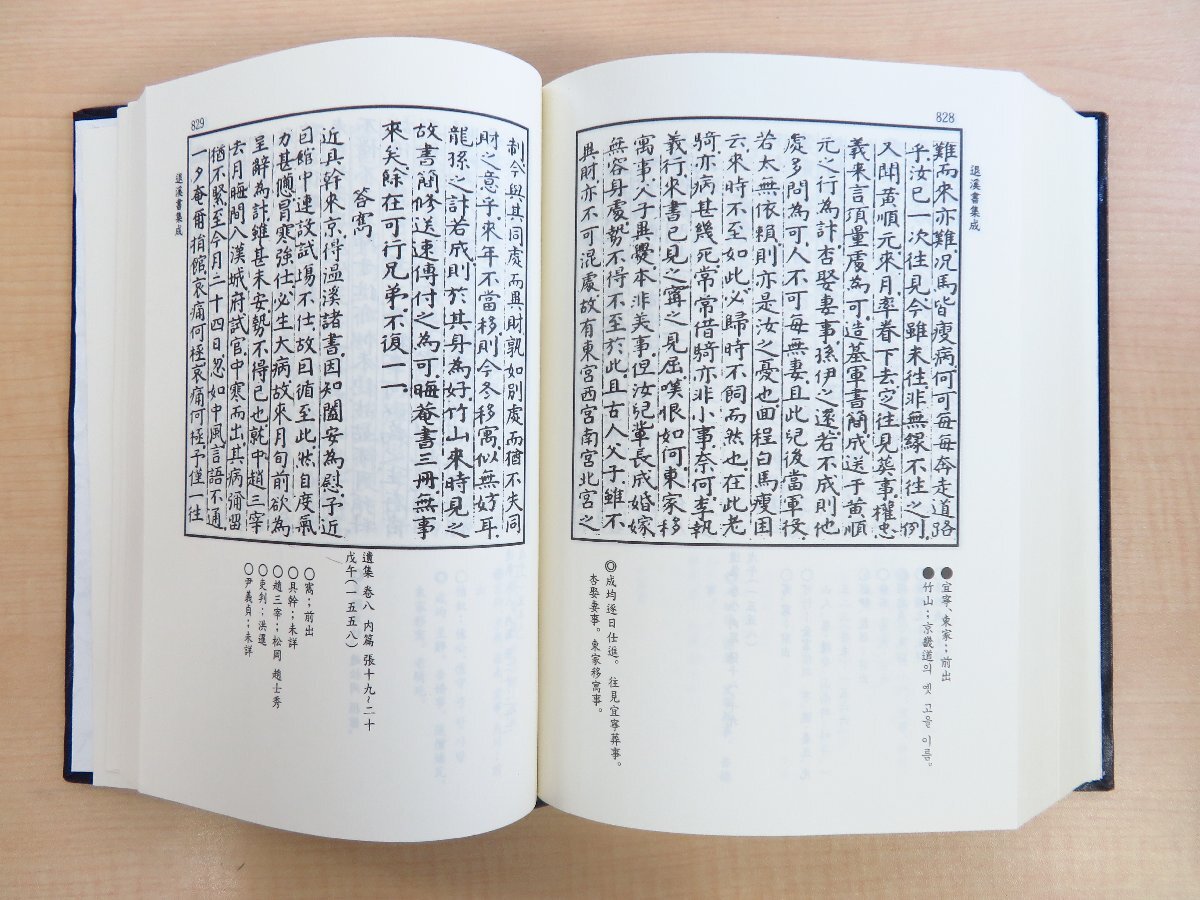 828
退溪書集成
難而來亦難.况馬皆瘦病.何可每每奔走道路
乎.汝已一次往見.今雖未往.非無緣不往之例.
又聞黃順元來月率眷下去云.往見葬事.權忠
義來言.項量處為可.造墓軍書簡.成送于黃順
元之行為計.杏娶妻事.孫伊之邃.若不成則他
處多問為可.人不可每無妻.且此兒後當軍役.
若太無依賴.則亦是汝之憂也.面程白馬瘦困
云.來時不至如此.必歸時不飼而然也.在此老
騎亦病甚幾死.常常借騎.亦非小事.奈何.李執
義行來書已見之.寗之見屈.嘆恨如何.東家移
寓事.父子異㸑本非美事.但汝兒輩長成婚嫁.
無容身處.勢不得不至於此.且古人父子雖不
異財.亦不可混處.故有東宮西宮南宮北宮之
●宜寧、東家;前出
●竹山;京畿道의 옛 고을 이름。
◎成均逐日仕進。 往見宜寧葬事。
杏娶妻事。 東家移寓事。
829
退溪書集成
制.今與其同處而異財.孰如別處而猶不失同
財之意乎.來年不當移.則今冬移寓似無妨耳.
龍孫之計若成.則於其身為好.竹山來時見之.
故書簡修送.速傳付之為可.晦菴書三冊.無事
來矣.餘在可行兄弟.不復一一.
答寯
近具幹來京.得溫溪諸書.因知闔安為慰.予近
日館中連設試場.不仕.故因循至此.然自度氣
力甚憊.冒寒強仕.必生大病.故來月旬前欲為
呈辭為計.雖甚未安.勢不得已也.就中趙三宰
去月晦間.入漢城府試官.中寒而出.其病彌留
猶不緊.至今月二十四日.忽如中風.言語不通.
一夕奄爾捐館.哀痛何極.哀痛何極.予僅一往
遺集 卷八 內篇 張十九~二十
戊午(一五五八)
○寯;前出
○具幹;未詳
○趙三宰;松岡 趙士秀
○吏判;洪暹
○尹義貞;未詳